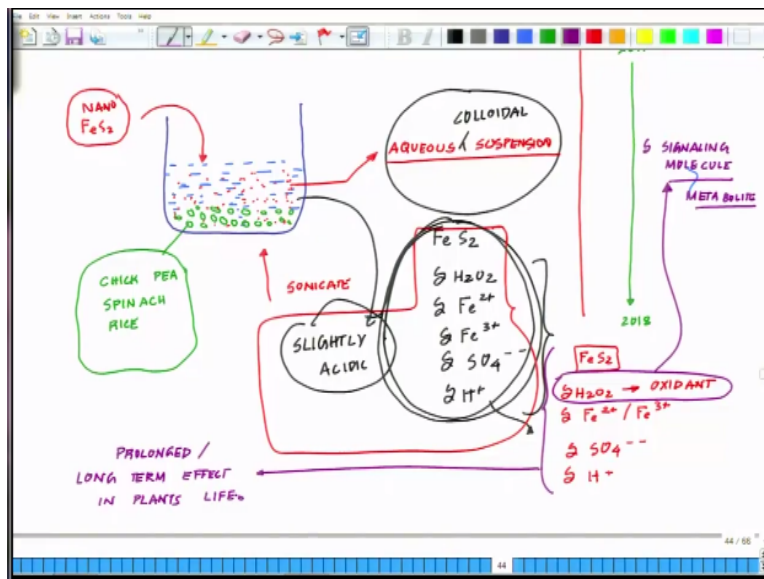 File Edit View Insert Actions Tools Help
NANO
FeS2
COLLOIDAL
AQUEOUS SUSPENSION
CHICK PEA
SPINACH
RICE
SONICATE
SLIGHTLY
ACIDIC
FeS2
H2O2
Fe2+
Fe3+
SO4--
H+
SIGNALING
MOLECULE
METABOLITE
2018
FeS2
H2O2 → OXIDANT
Fe2+ / Fe3+
SO4--
H+
PROLONGED /
LONG TERM EFFECT
IN PLANTS LIFE.
44 / 66
44